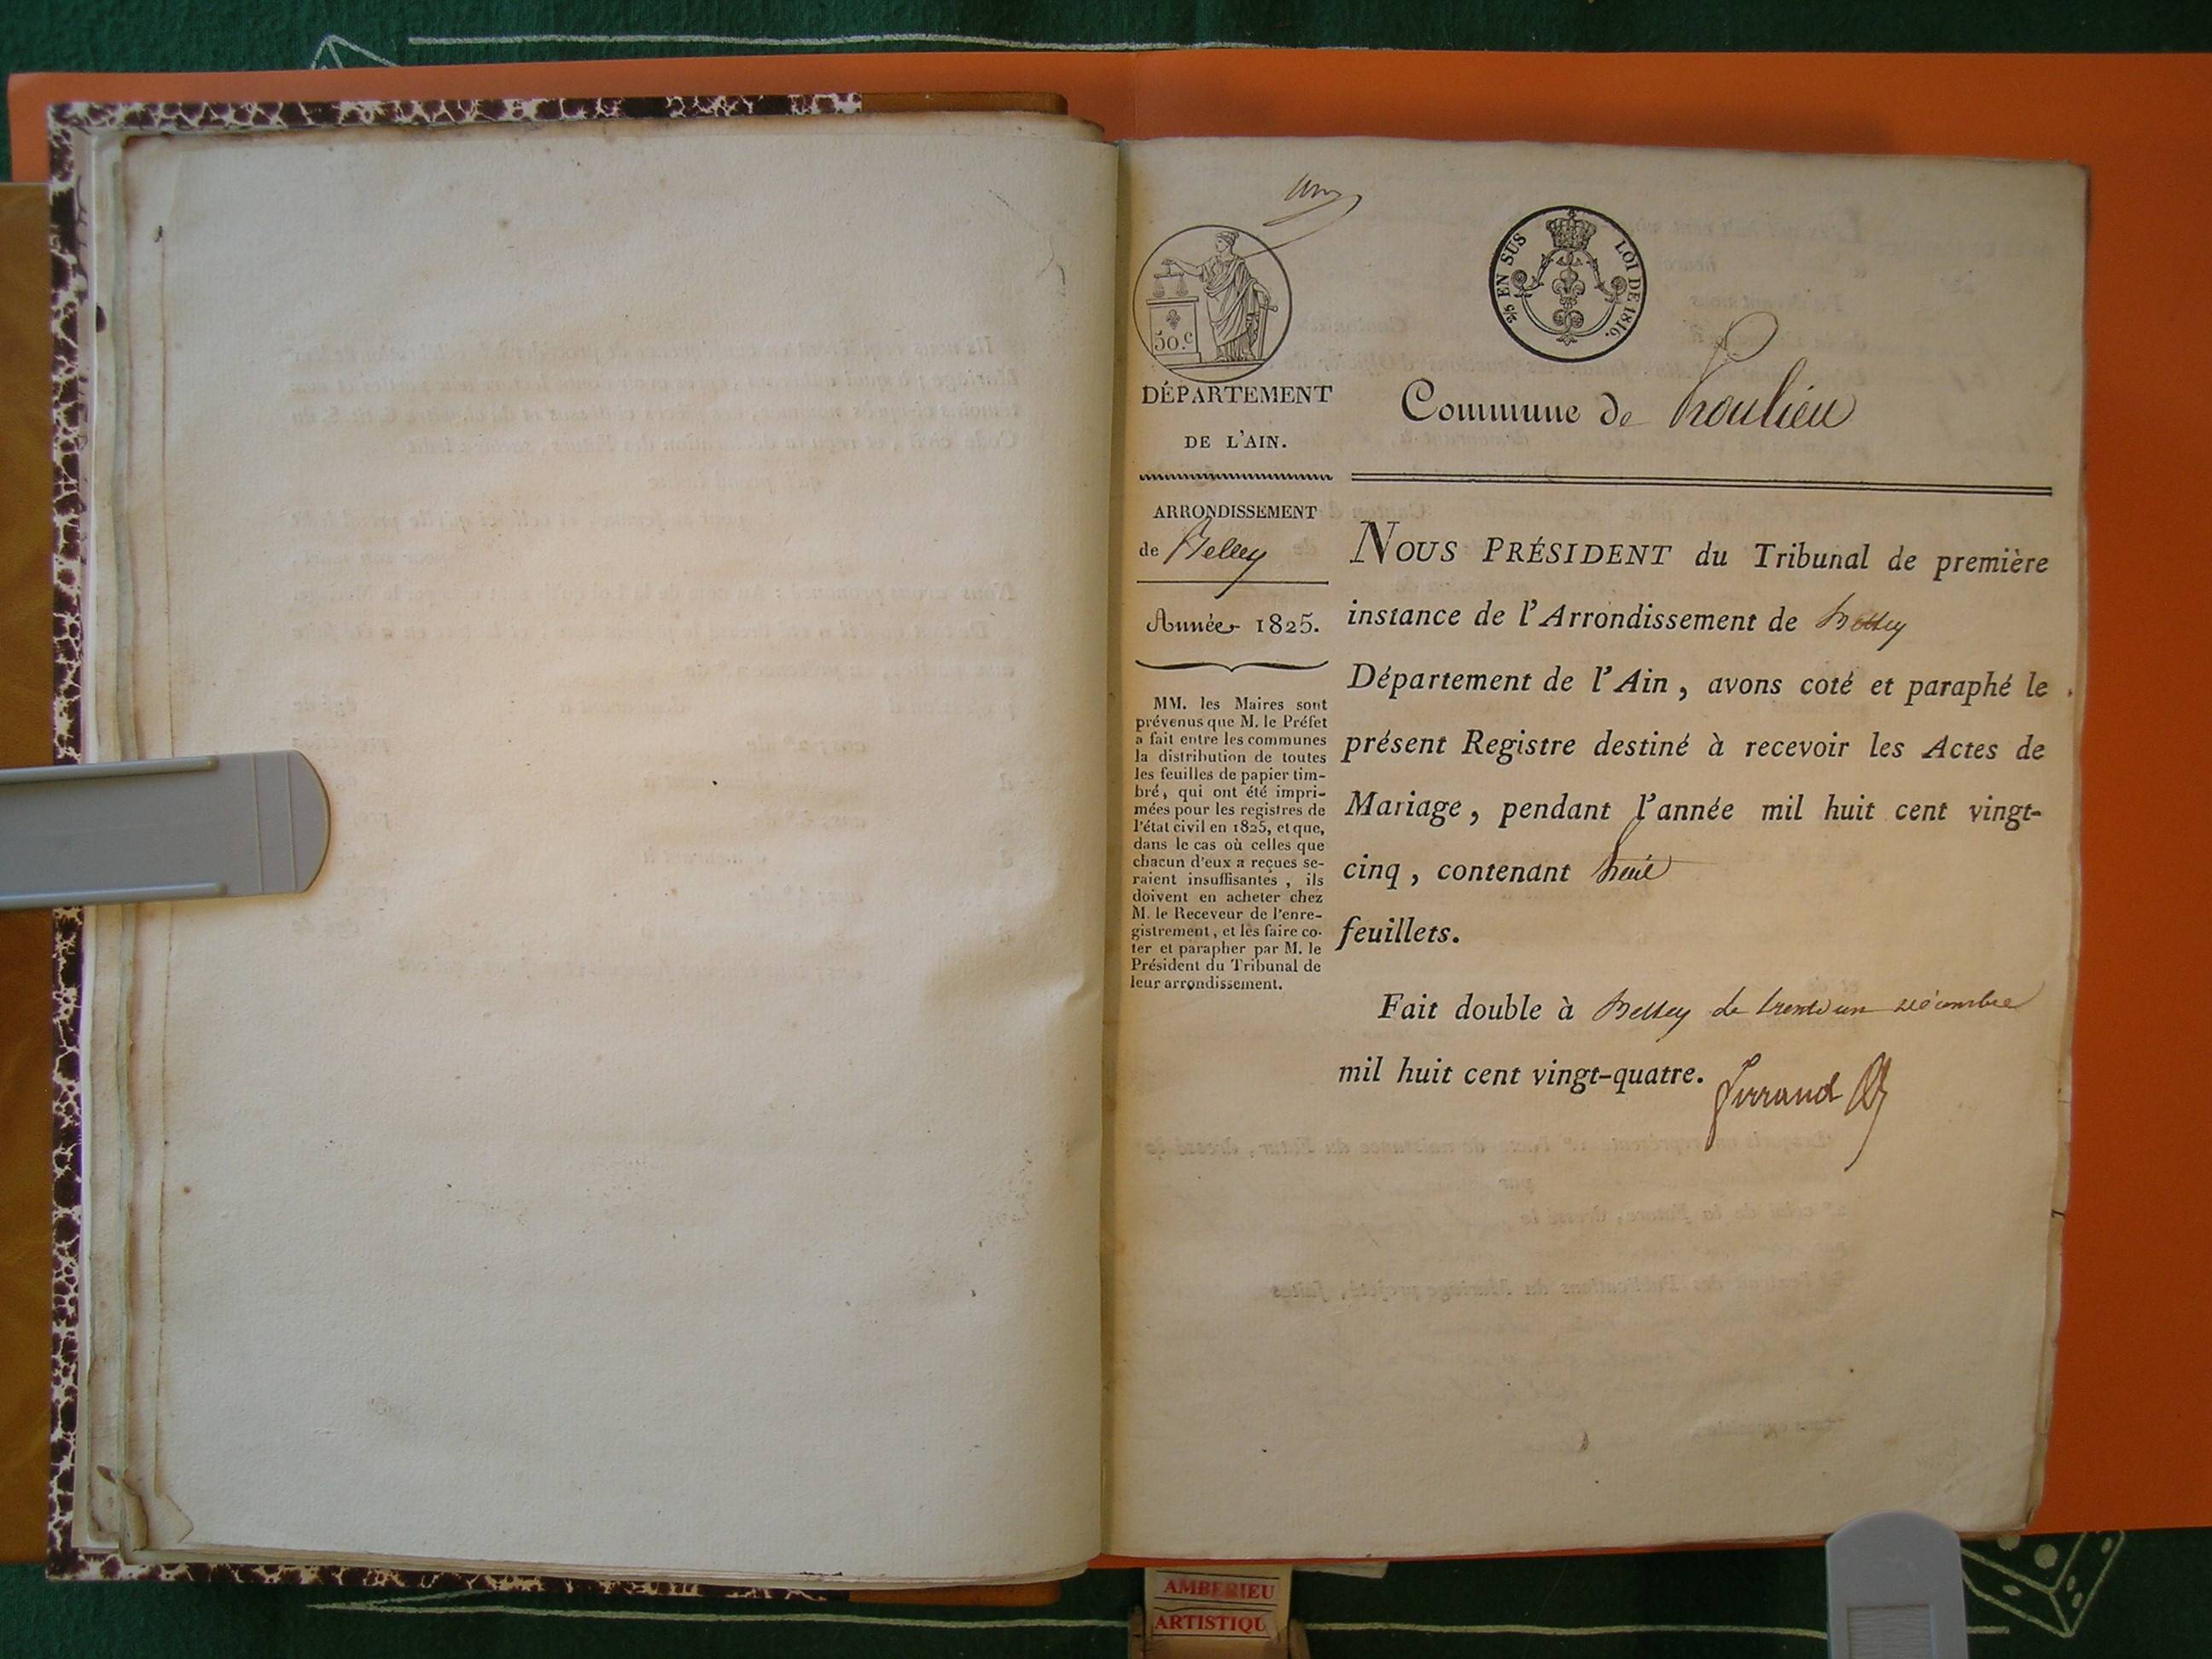 un
50.c
2/5 EN SUS LOI DE 1816.
DÉPARTEMENT
DE L'AIN.
Commune de Proulieu
ARRONDISSEMENT
de Belley
Année 1825.
MM. les Maires sont
prévenus que M. le Préfet
a fait entre les communes
la distribution de toutes
les feuilles de papier tim-
bré, qui ont été impri-
mées pour les registres de
l'état civil en 1825, et que,
dans le cas où celles que
chacun d'eux a reçues se-
raient insuffisantes, ils
doivent en acheter chez
M. le Receveur de l'enre-
gistrement, et les faire co-
ter et parapher par M. le
Président du Tribunal de
leur arrondissement.
NOUS PRÉSIDENT du Tribunal de première
instance de l'Arrondissement de Belley
Département de l'Ain, avons coté et paraphé le
présent Registre destiné à recevoir les Actes de
Mariage, pendant l'année mil huit cent vingt-
cinq, contenant huit
feuillets.
Fait double à Belley le trente un décembre
mil huit cent vingt-quatre.
AMBERIEU
ARTISTIQU